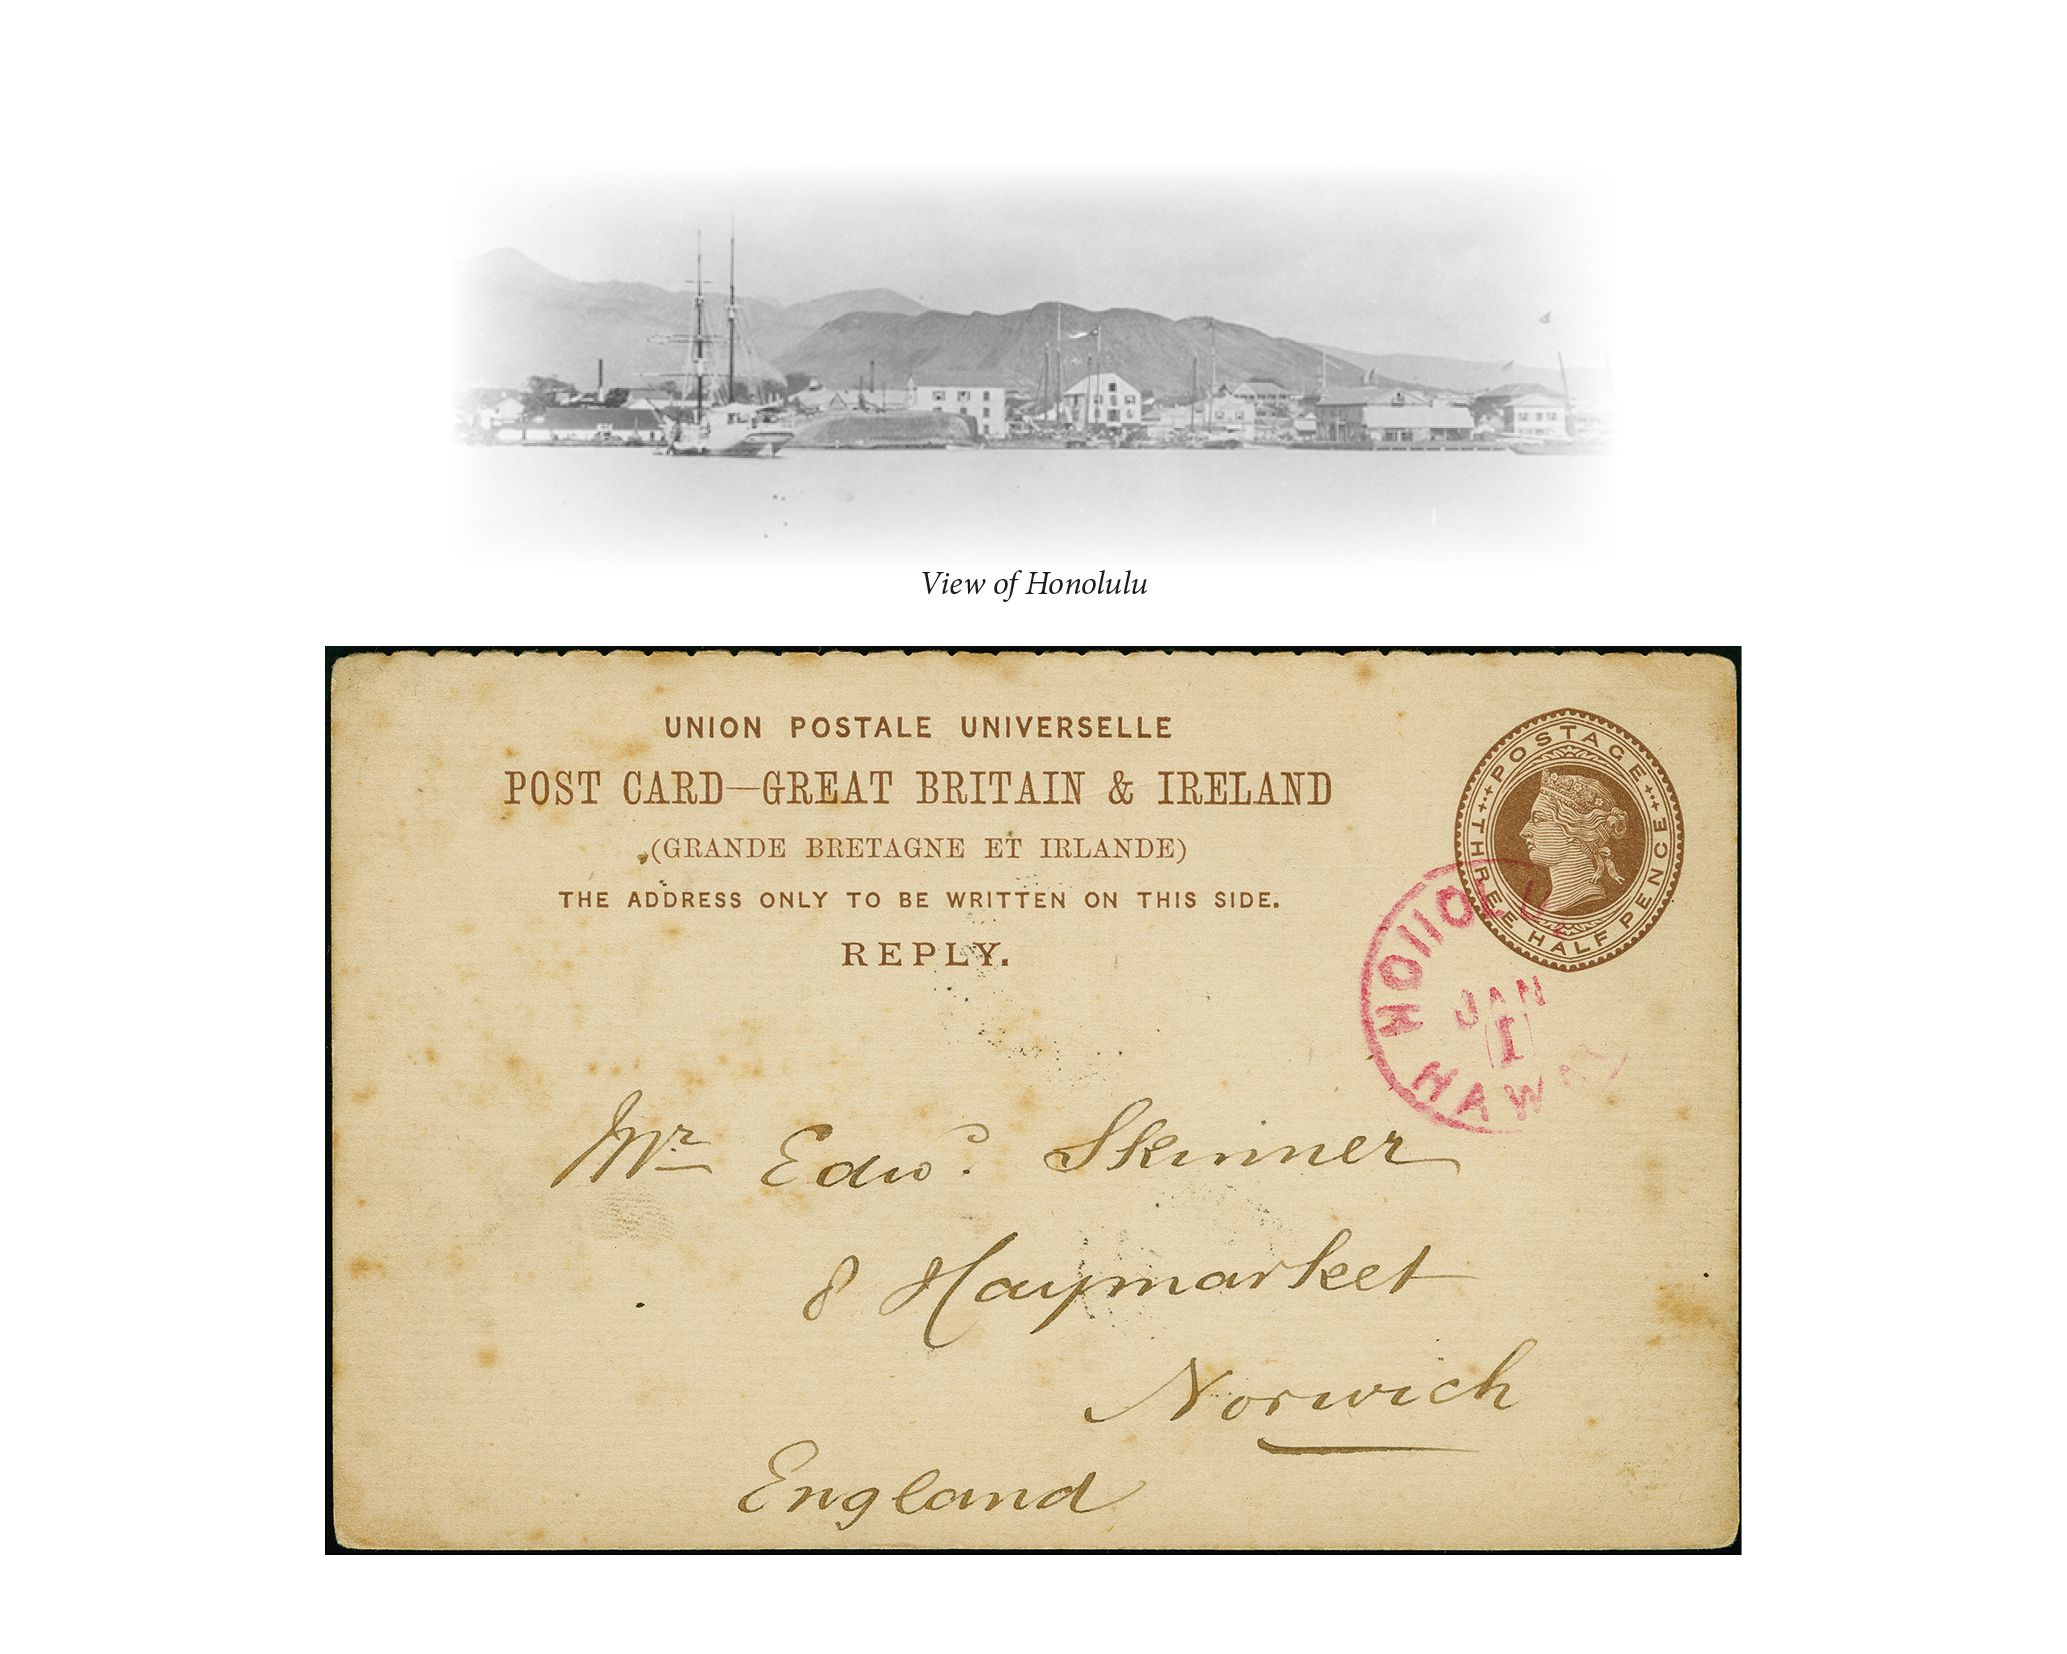 View of Honolulu
UNION POSTALE UNIVERSELLE
POST CARD—GREAT BRITAIN & IRELAND
(GRANDE BRETAGNE ET IRLANDE)
THE ADDRESS ONLY TO BE WRITTEN ON THIS SIDE.
REPLY.
POSTAGE
THREE HALF PENCE
HONOLU
JAN
1
HAWA
Mr Edwd. Skinner
8 Haymarket
Norwich
England